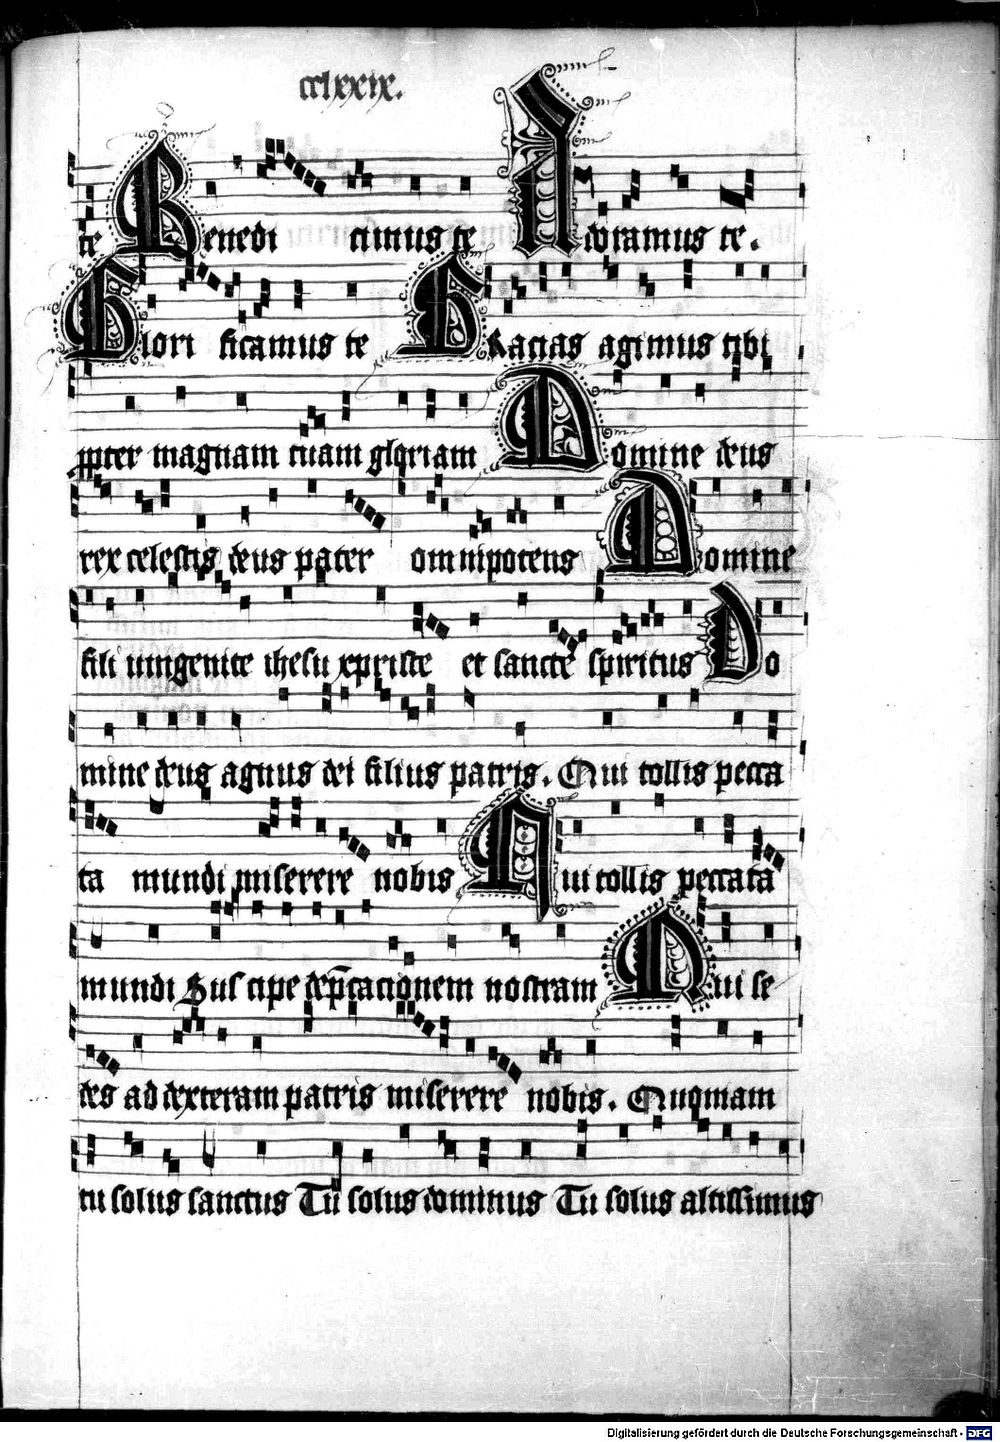 cclxxix.
te Benedi cimus te Adoramus te.
Glori ficamus te GRacias agimus tibi
ppter magnam tuam gloriam Domine deus
rex celestis deus pater omnipotens Domine
fili unigenite ihesu xpriste et sancte spiritus Do
mine deus agnus dei filius patris. Qui tollis pecca
ta mundi miserere nobis Qui tollis peccata
mundi Sus cipe dep̄cacionem nostram Qui se
des ad dexteram patris miserere nobis. Quoniam
tu solus sanctus Tu solus dominus Tu solus altissimus
Digitalisierung gefördert durch die Deutsche Forschungsgemeinschaft - DFG